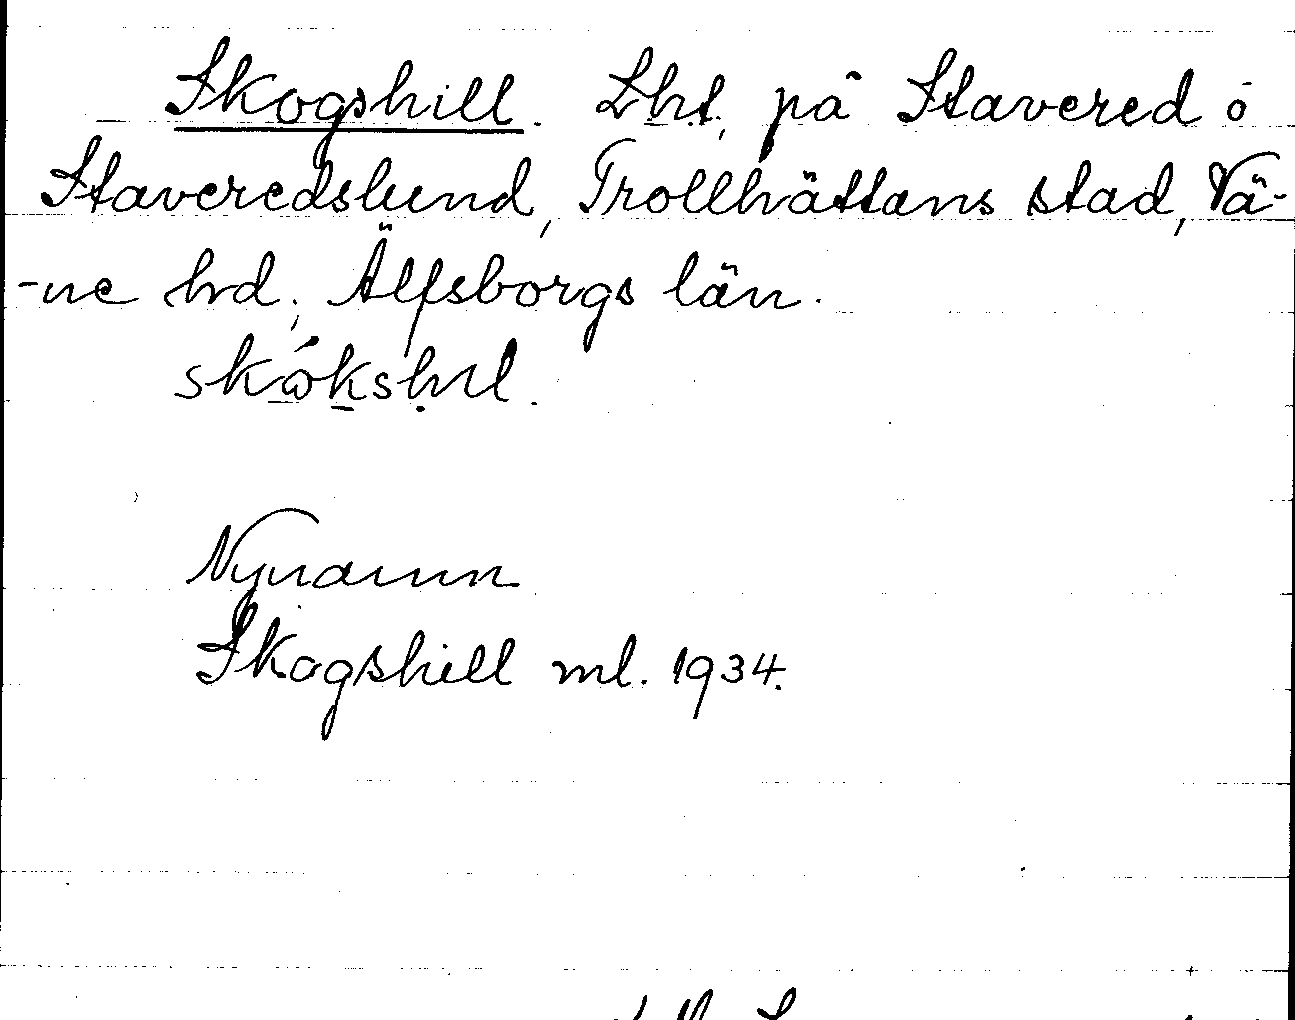 Skogshill. Lht. på Stavered ö
Staveredslund, Trollhättans stad, Vä-
-ne hd, Älfsborgs län.
Nynamn
Skogshill ml. 1934.